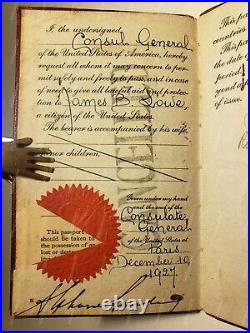 I, the undersigned
Consul General
of the United States of America, hereby
request all whom it may concern to per-
mit safely and freely to pass, and in case
of need to give all lawful aid and protec-
tion to James B. Lowe,
a citizen of the United States.
The bearer is accompanied by his wife,
minor children,
CANCELLED
Given under my hand
and the seal of the
Consulate
General
of the United States at
Paris
December 10,
1927
This passport
should be taken to
the possession of no
lost or
Th
countries
This pa
the date
period